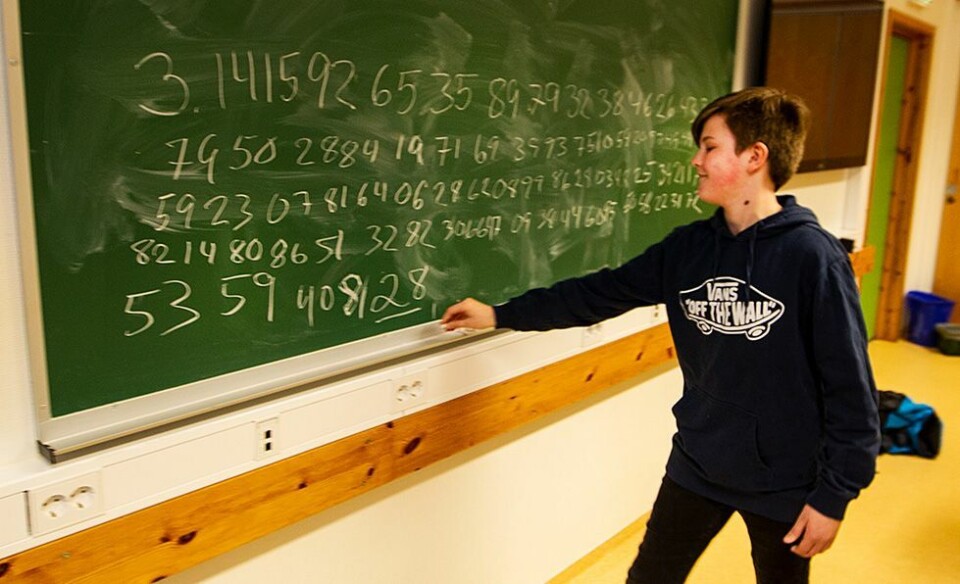 3.141592 65 35 89 79 32 38 46 26 43
79 50 2884 19 71 69 39 93 7510
59 23 07 81 64 06 28 620899 86 28 03 48 25 34 21
82 14 80 86 51 32 82 306647 09 38 44 6095 50 58 22 31 72
53 59 40 8128
VANS
"OFF THE WALL"